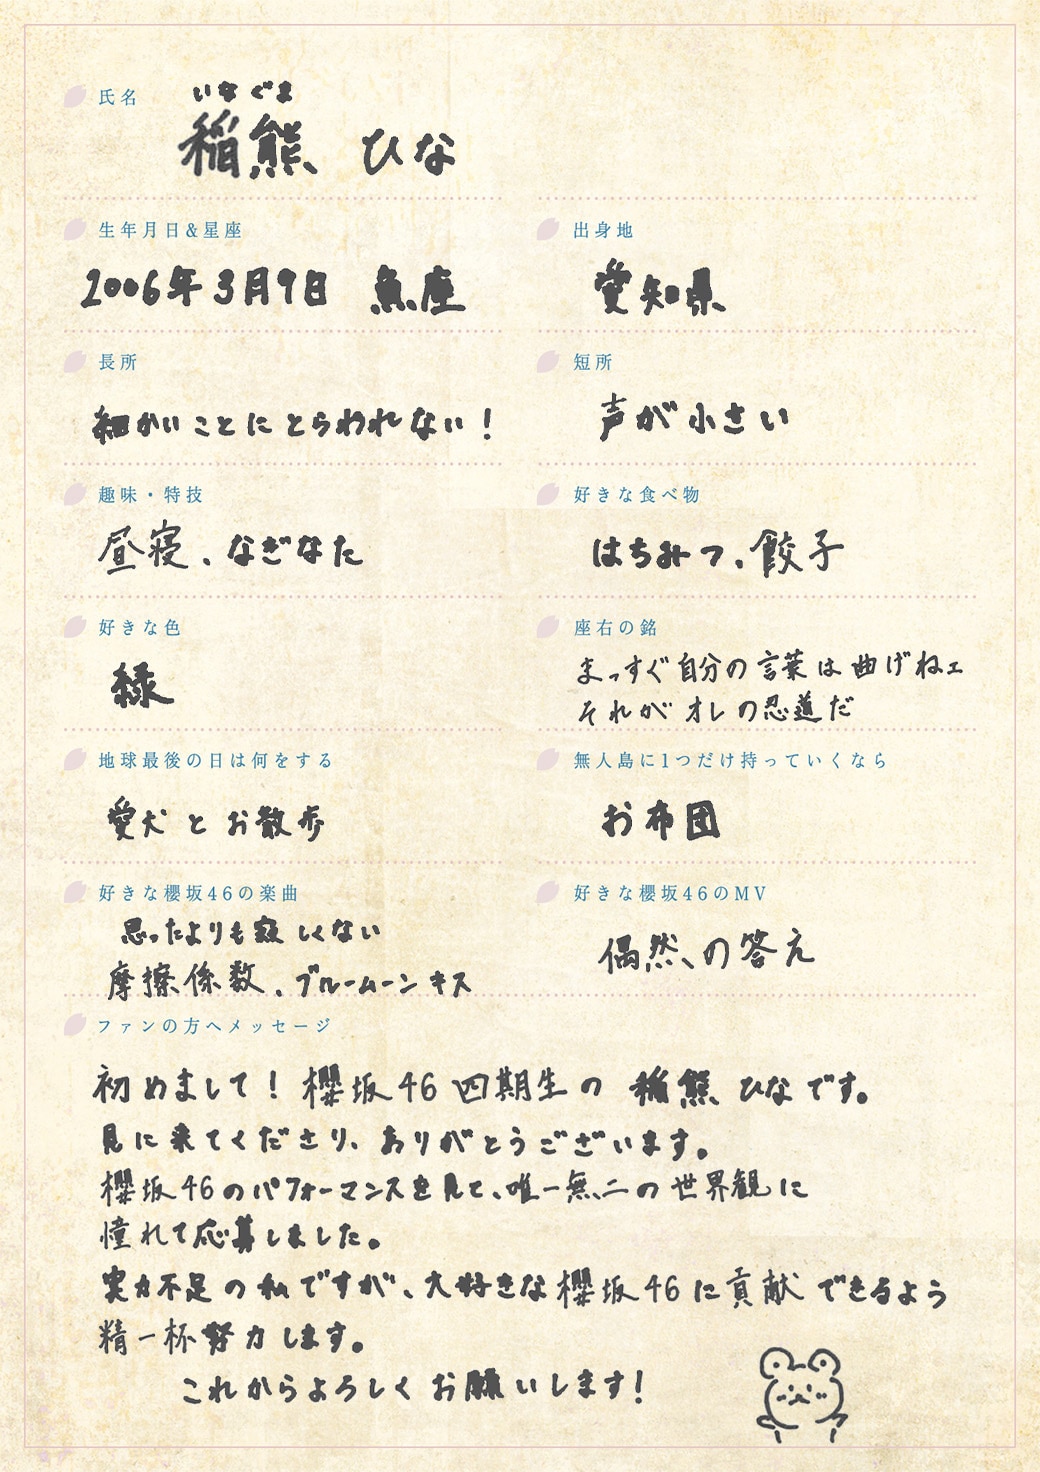 氏名
いなぐま
稲熊 ひな
生年月日&星座
2006年3月9日 魚座
出身地
愛知県
長所
細かいことにとらわれない!
短所
声が小さい
趣味・特技
昼寝、なぎなた
好きな食べ物
はちみつ、餃子
好きな色
緑
座右の銘
まっすぐ自分の言葉は曲げねェ
それがオレの忍道だ
地球最後の日は何をする
愛犬とお散歩
無人島に1つだけ持っていくなら
お布団
好きな櫻坂46の楽曲
思ったよりも寂しくない
摩擦係数、ブルームーンキス
好きな櫻坂46のMV
偶然の答え
ファンの方へメッセージ
初めまして! 櫻坂46 四期生の 稲熊 ひなです。
見に来てくださり、ありがとうございます。
櫻坂46のパフォーマンスを見て、唯一無二の世界観に
憧れて応募しました。
実力不足の私ですが、大好きな櫻坂46に貢献できるよう
精一杯努力します。
これからよろしくお願いします!